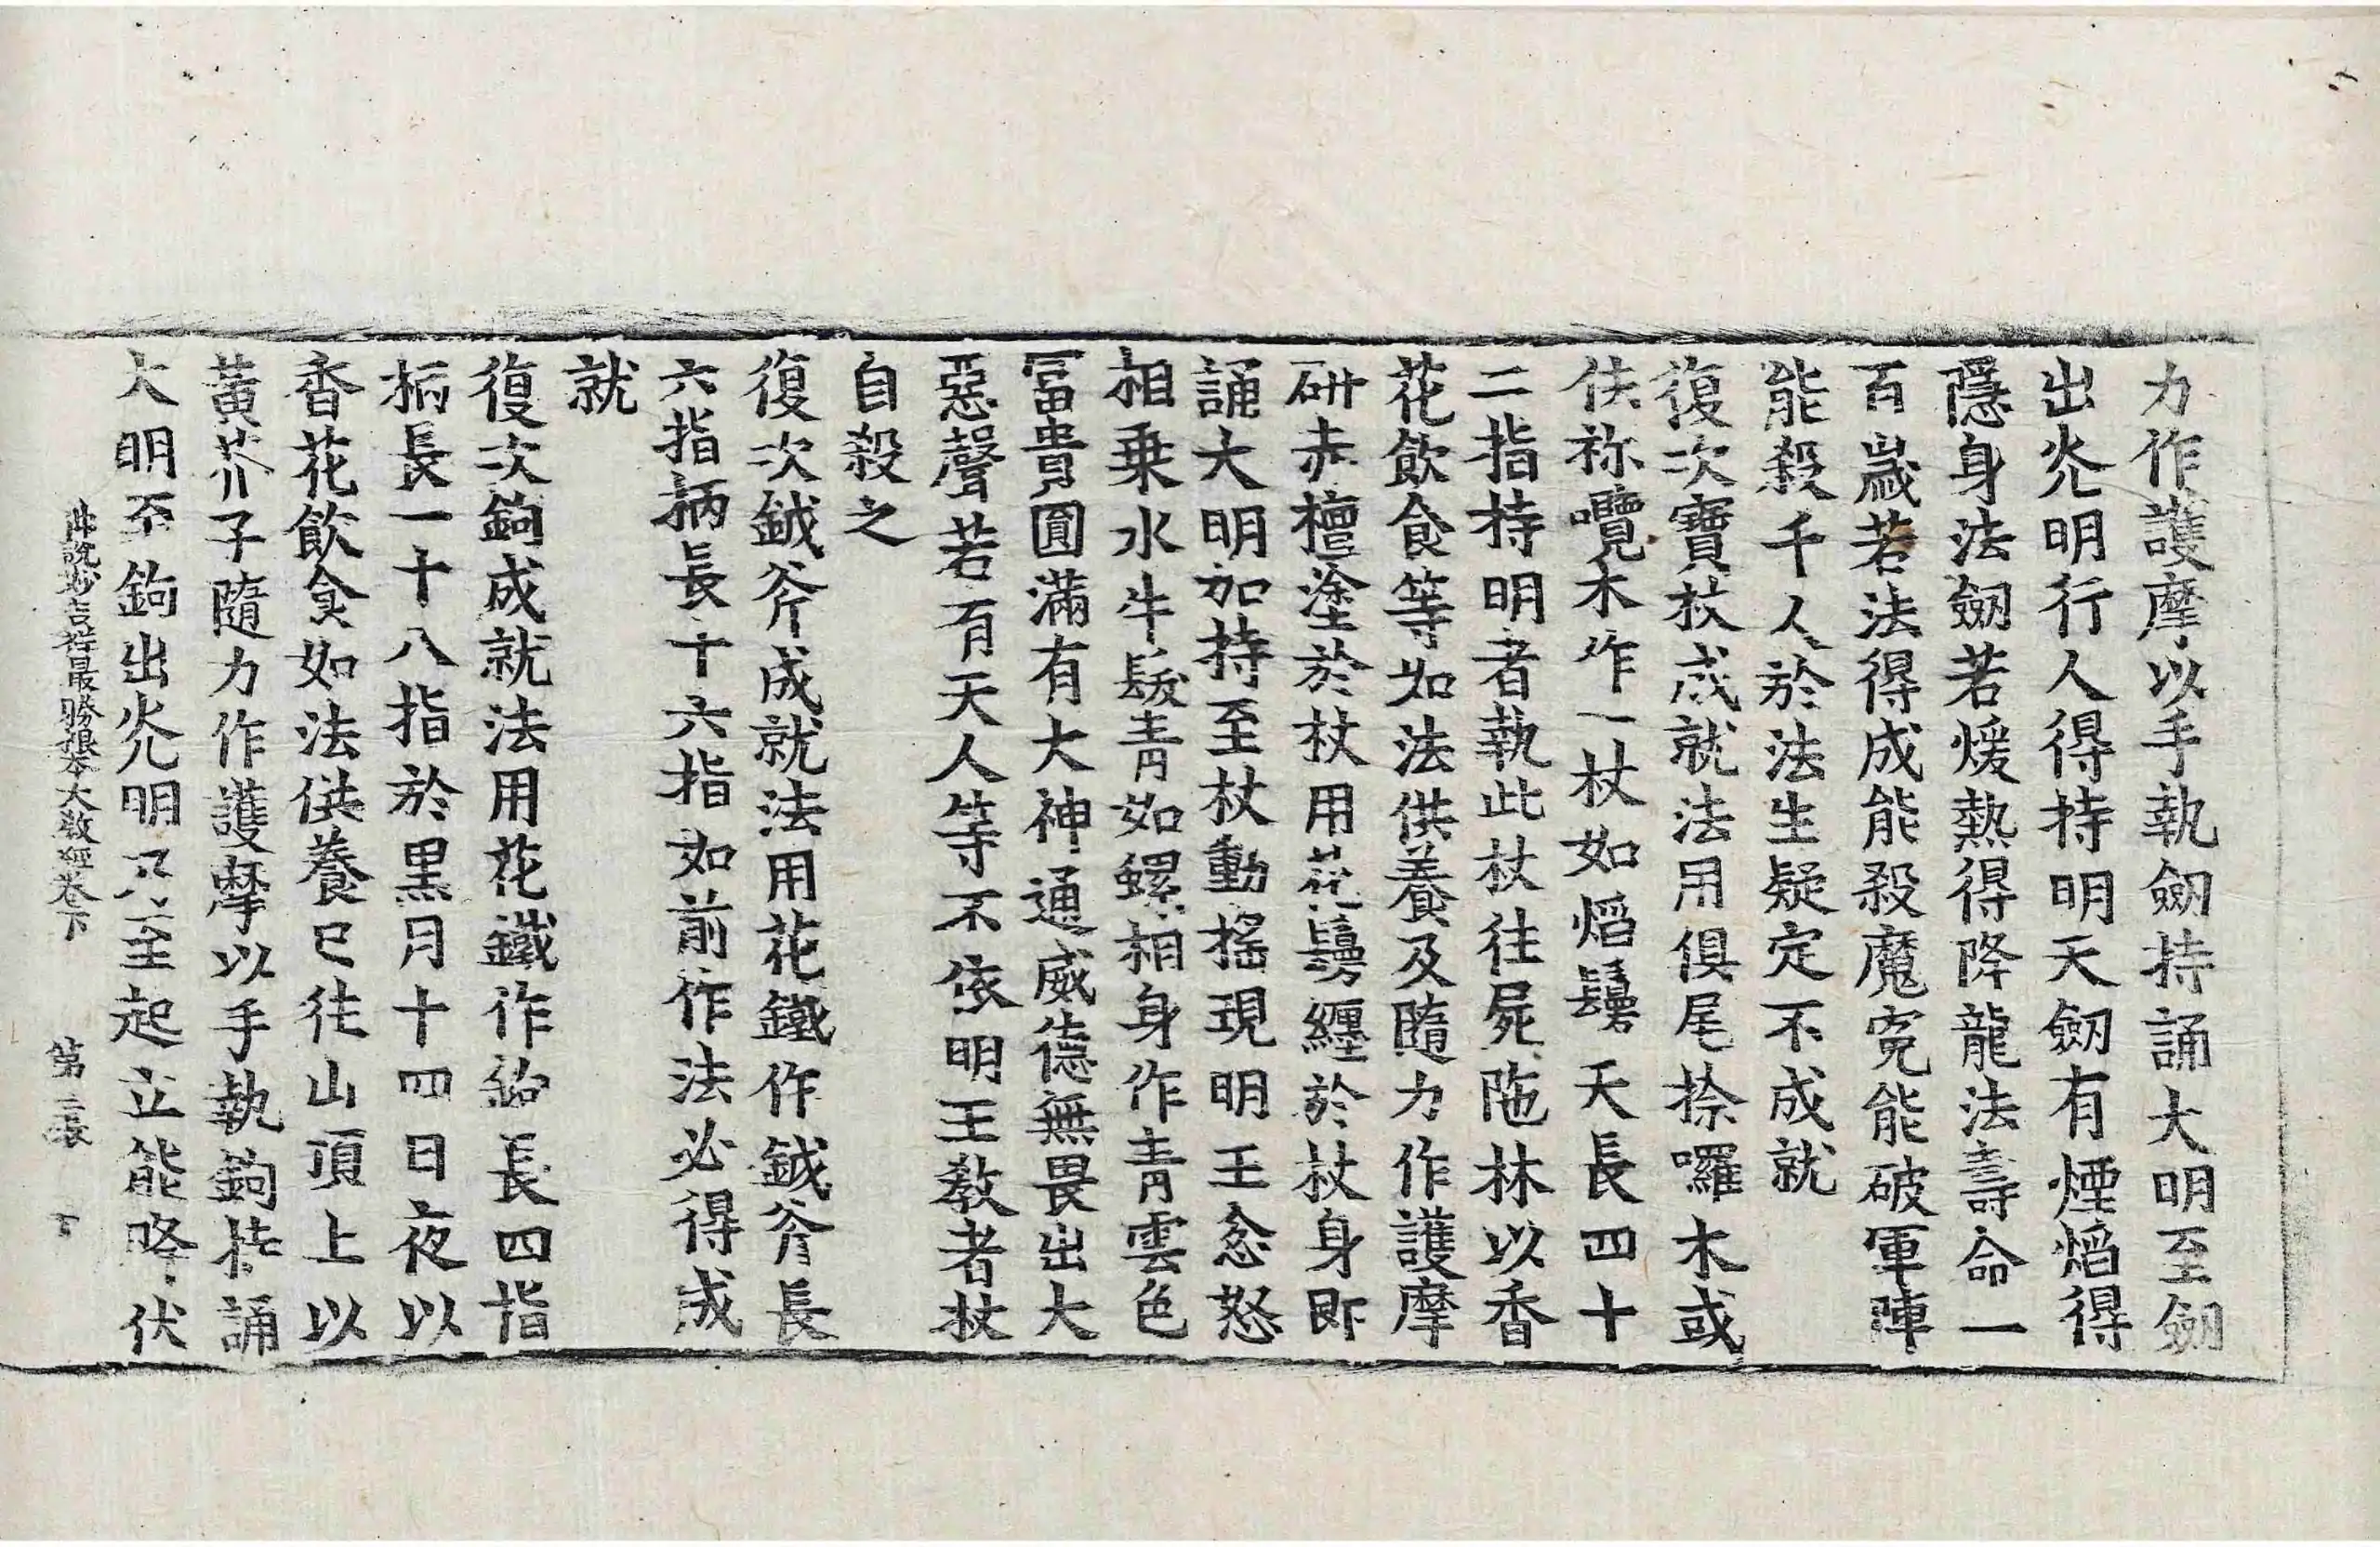 力作護摩以手執劒持誦大明至劒
出炗明行人得持明天劒有煙熖得
隱身法劒若煖熱得降龍法壽命一
百歲若法得成能殺魔寃能破軍陣
能殺千人於法生疑定不成就
復次寶杖成就法用俱尾捺囉木或
佉祢囕木作一杖如熖鬘天長四十
二指持明者執此杖往屍陁林以香
花飲食等如法供養及隨力作護摩
研赤檀塗於杖用花鬘纏於杖身即
誦大明加持至杖動揺現明王忿怒
相乗水牛髮青如螺相身作青雲色
冨貴圓滿有大神通威德無畏出大
惡聲若有天人等不依明王敎者杖
自殺之
復次鉞斧成就法用花鐵作鉞斧長
六指柄長十六指如前作法必得成
就
復次鉤成就法用花鐵作鉤長四指
柄長一十八指於黒月十四日夜以
香花飲食如法供養已往山頂上以
黃芥子隨力作護摩以手執鉤持誦
大明至鉤出炗明乃至起立能降伏
佛說妙吉祥最勝根本大敎經卷下 第二張